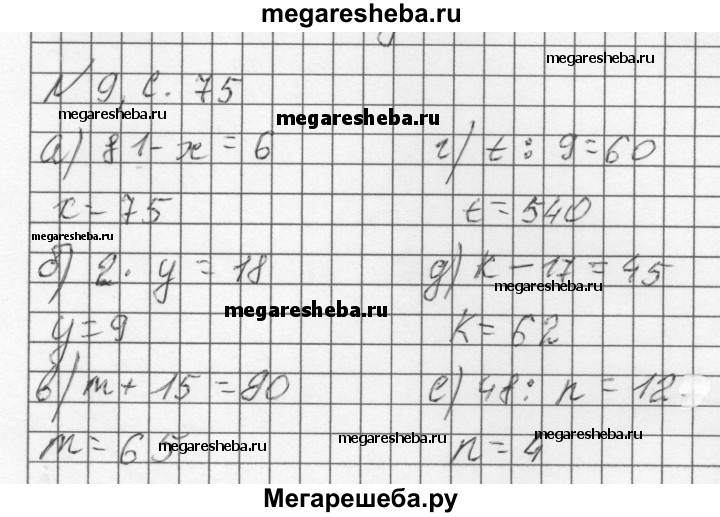 megaresheba.ru
megaresheba.ru
№ 9, с. 75
megaresheba.ru
megaresheba.ru
а) 81 - x = 6
x = 75
megaresheba.ru
б) 2 · y = 18
y = 9
megaresheba.ru
в) m + 15 = 80
m = 65
megaresheba.ru
г) t : 9 = 60
t = 540
д) k - 17 = 45
megaresheba.ru
k = 62
е) 48 : n = 12
n = 4
megaresheba.ru
megaresheba.ru
megaresheba.ru
Мегарешеба.ру